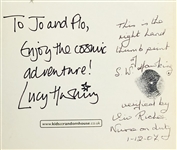 To Jo and Flo,
Enjoy the cosmic
adventure!
Lucy Hawking
www.kidsatrandomhouse.co.uk
This is the
right hand
thumb print
of
S.W. Hawking
verified by
Sue Riches
Nurse on duty
1-12-07